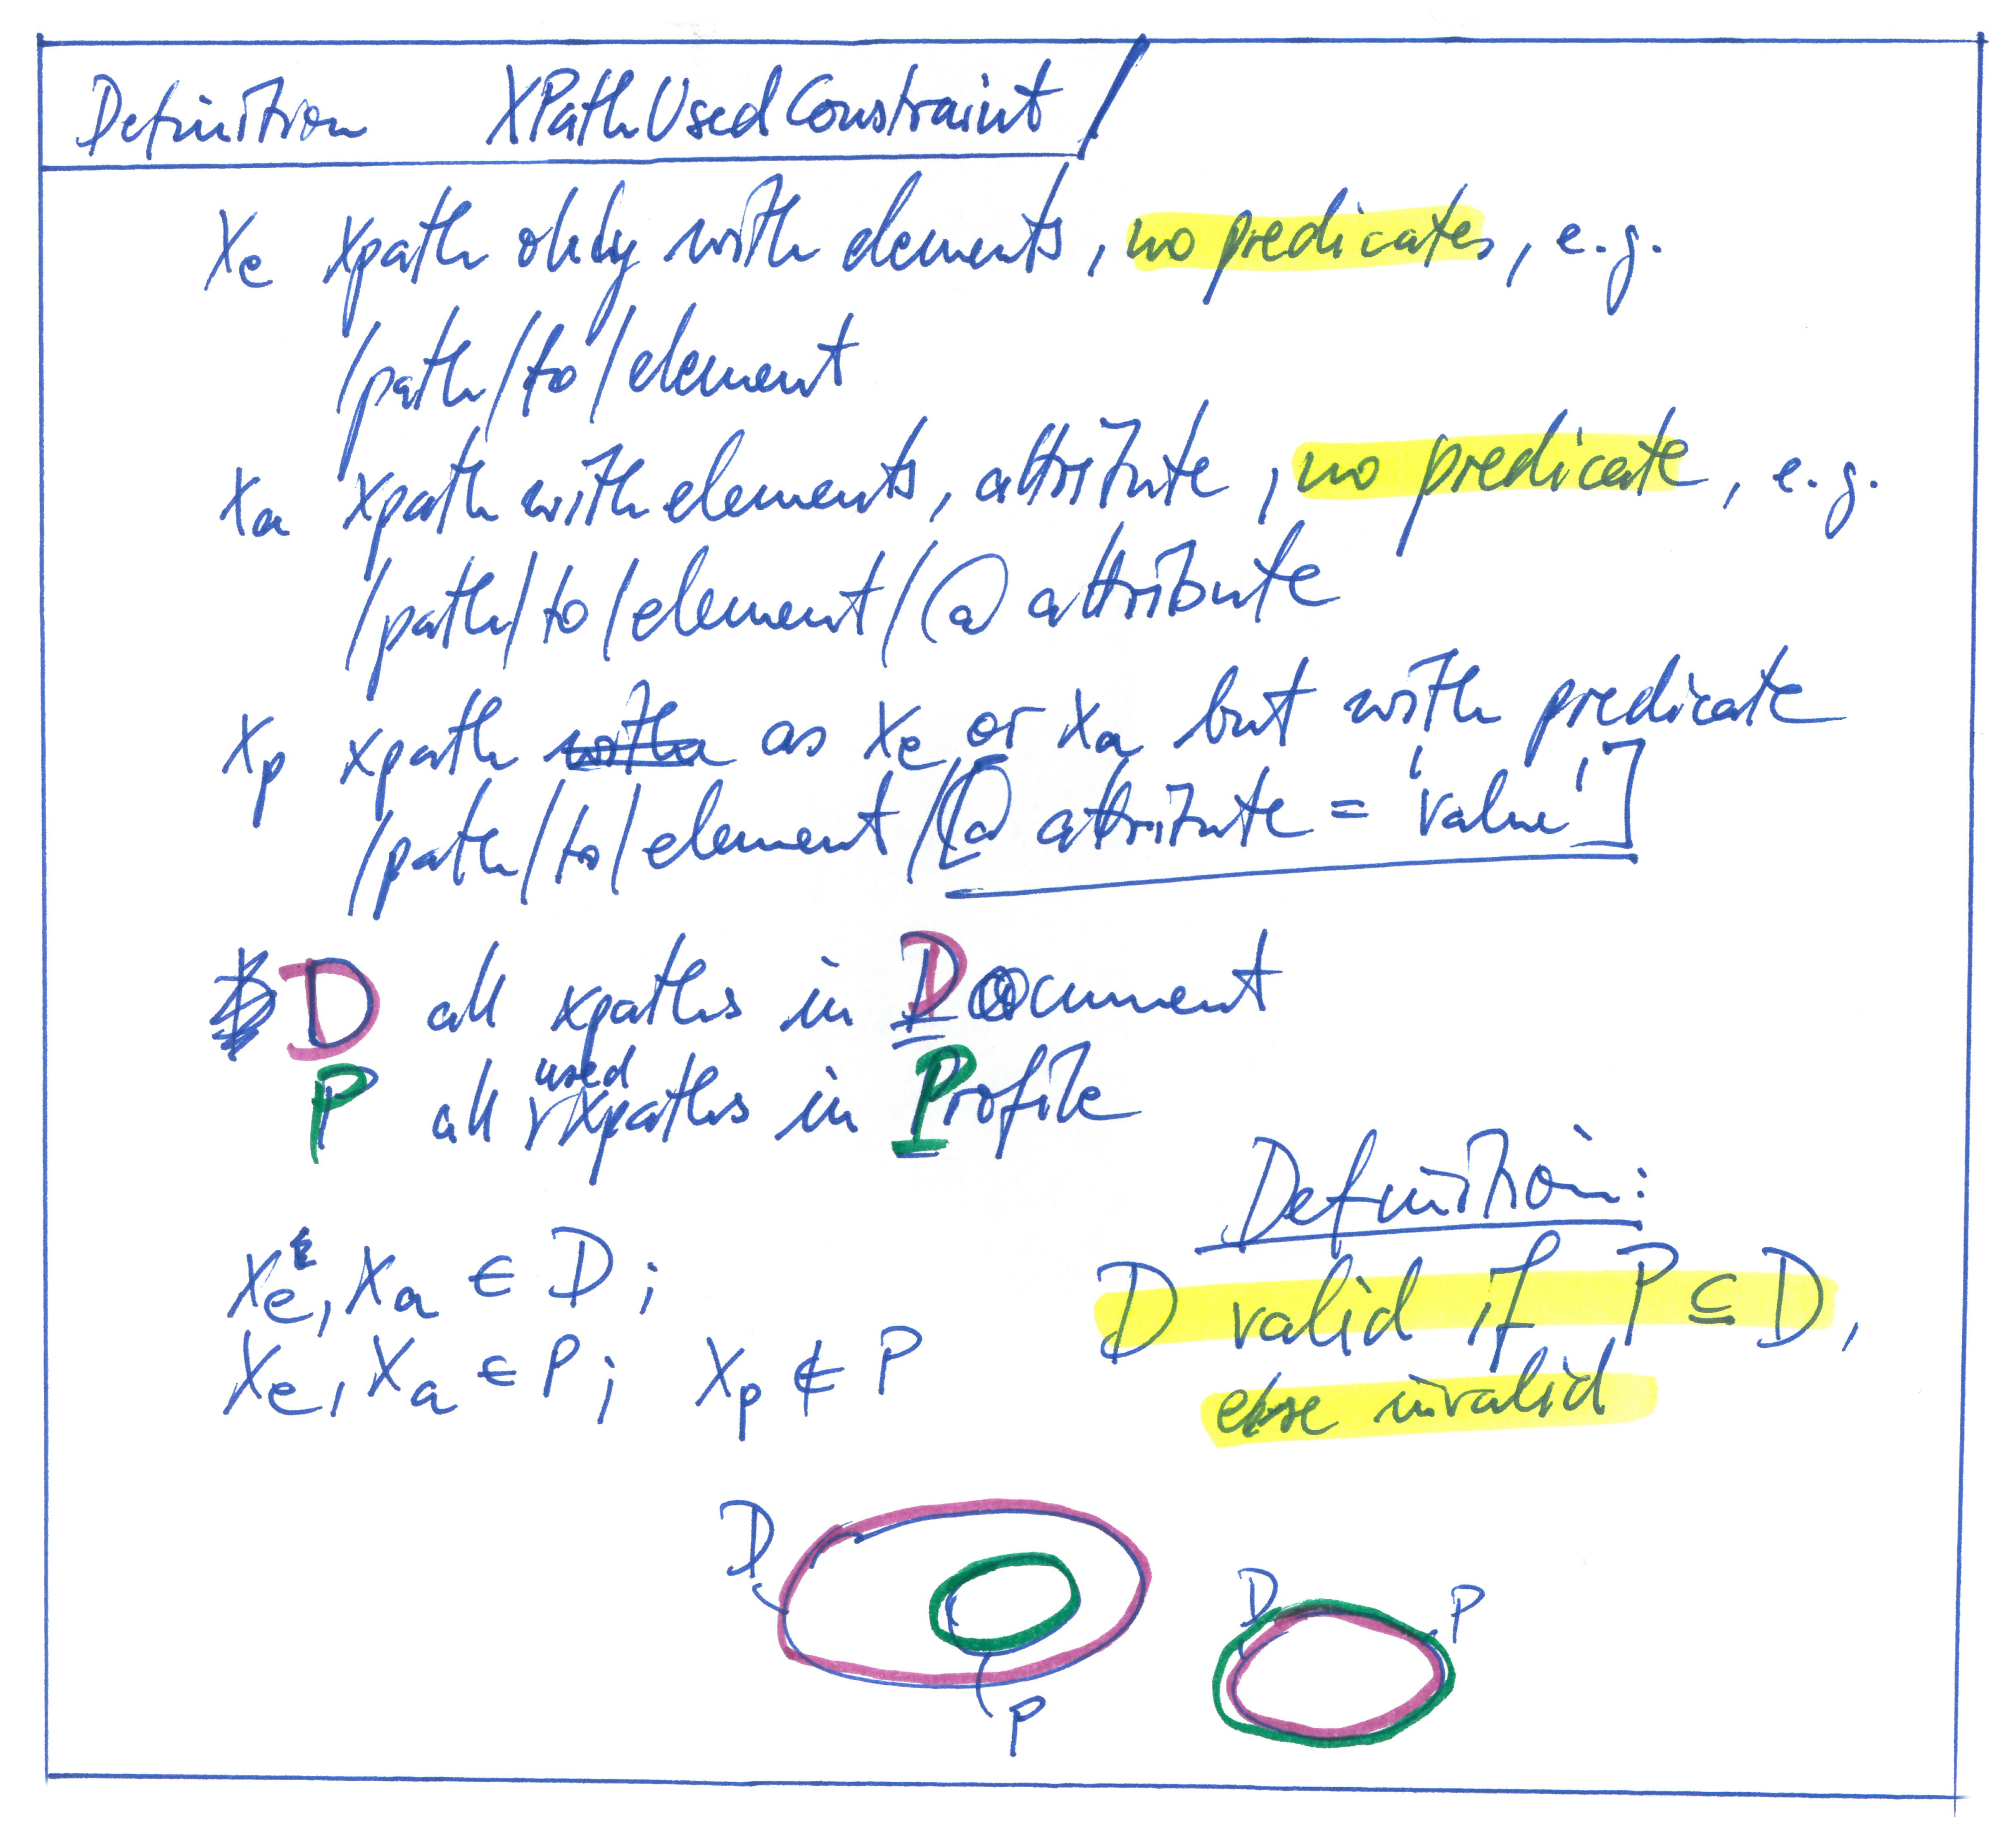 Definition XPathUsedConstraint
Xe xpath only with elements, no predicates, e.g.
/path/to/element
Xa xpath with elements, attribute, no predicate, e.g.
/path/to/element/@attribute
Xp xpath with as Xe or Xa but with predicate
/path/to/element/[@attribute = 'value']
D all xpaths in Document
used
P all xpaths in Profile
Definition:
Xe, Xa ∈ D;
D valid if P ⊆ D,
Xe, Xa ∈ P; Xp ∉ P
else invalid
D
D P
P